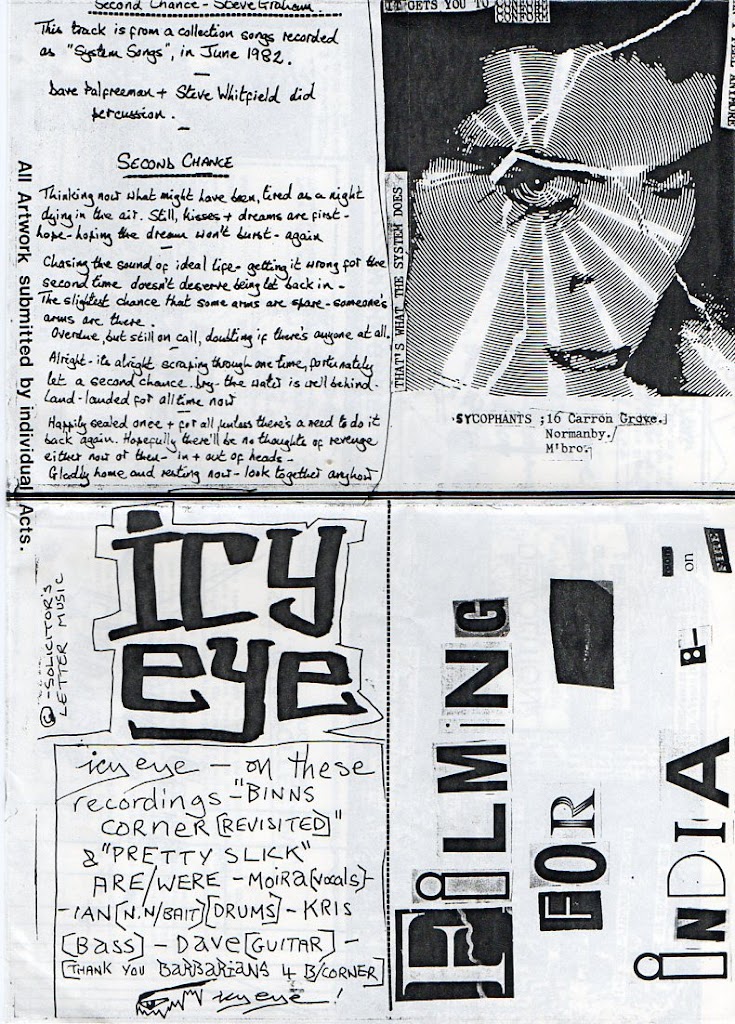 Second Chance - Steve Graham
This track is from a collection songs recorded
as "System Songs", in June 1982.
Dave Palfreeman + Steve Whitfield did
percussion.
SECOND CHANCE
Thinking now what might have been, tired as a night
dying in the air. Still, kisses + dreams are first -
hope - hoping the dream won't burst - again
Chasing the sound of ideal life - getting it wrong for the
second time doesn't deserve being let back in -
The slightest chance that some arms are spare - someone's
arms are there.
Overdue, but still on call, doubting if there's anyone at all.
Alright - its alright scraping through one time, fortunately
let a second chance. - the water is well behind -
Land - landed for all time now
Happily sealed once + for all, unless there's a need to do it
back again. Hopefully there'll be no thoughts of revenge
either now or then - in + out of heads -
Gladly home and resting now - look together anyhow
All Artwork submitted by individual Acts.
IT GETS YOU TO CONFORM
CONFORM
CONFORM
FEEL ANYMORE
THAT'S WHAT THE SYSTEM DOES
SYCOPHANTS ;16 Carron Grove.
Normanby.
M'bro.
icy
eye
© - SOLICITOR'S
LETTER MUSIC
icy eye - on these
recordings - "BINNS
CORNER [REVISITED]"
& "PRETTY SLICK"
ARE/WERE - MOIRA [vocals] -
- IAN [N.N/BAIT] [DRUMS] - KRIS
[BASS] - Dave [GUITAR] -
[THANK YOU BARBARIANS 4 B/CORNER]
icy eye!
FiLMiNG
FOR
iNDIA
:-
on